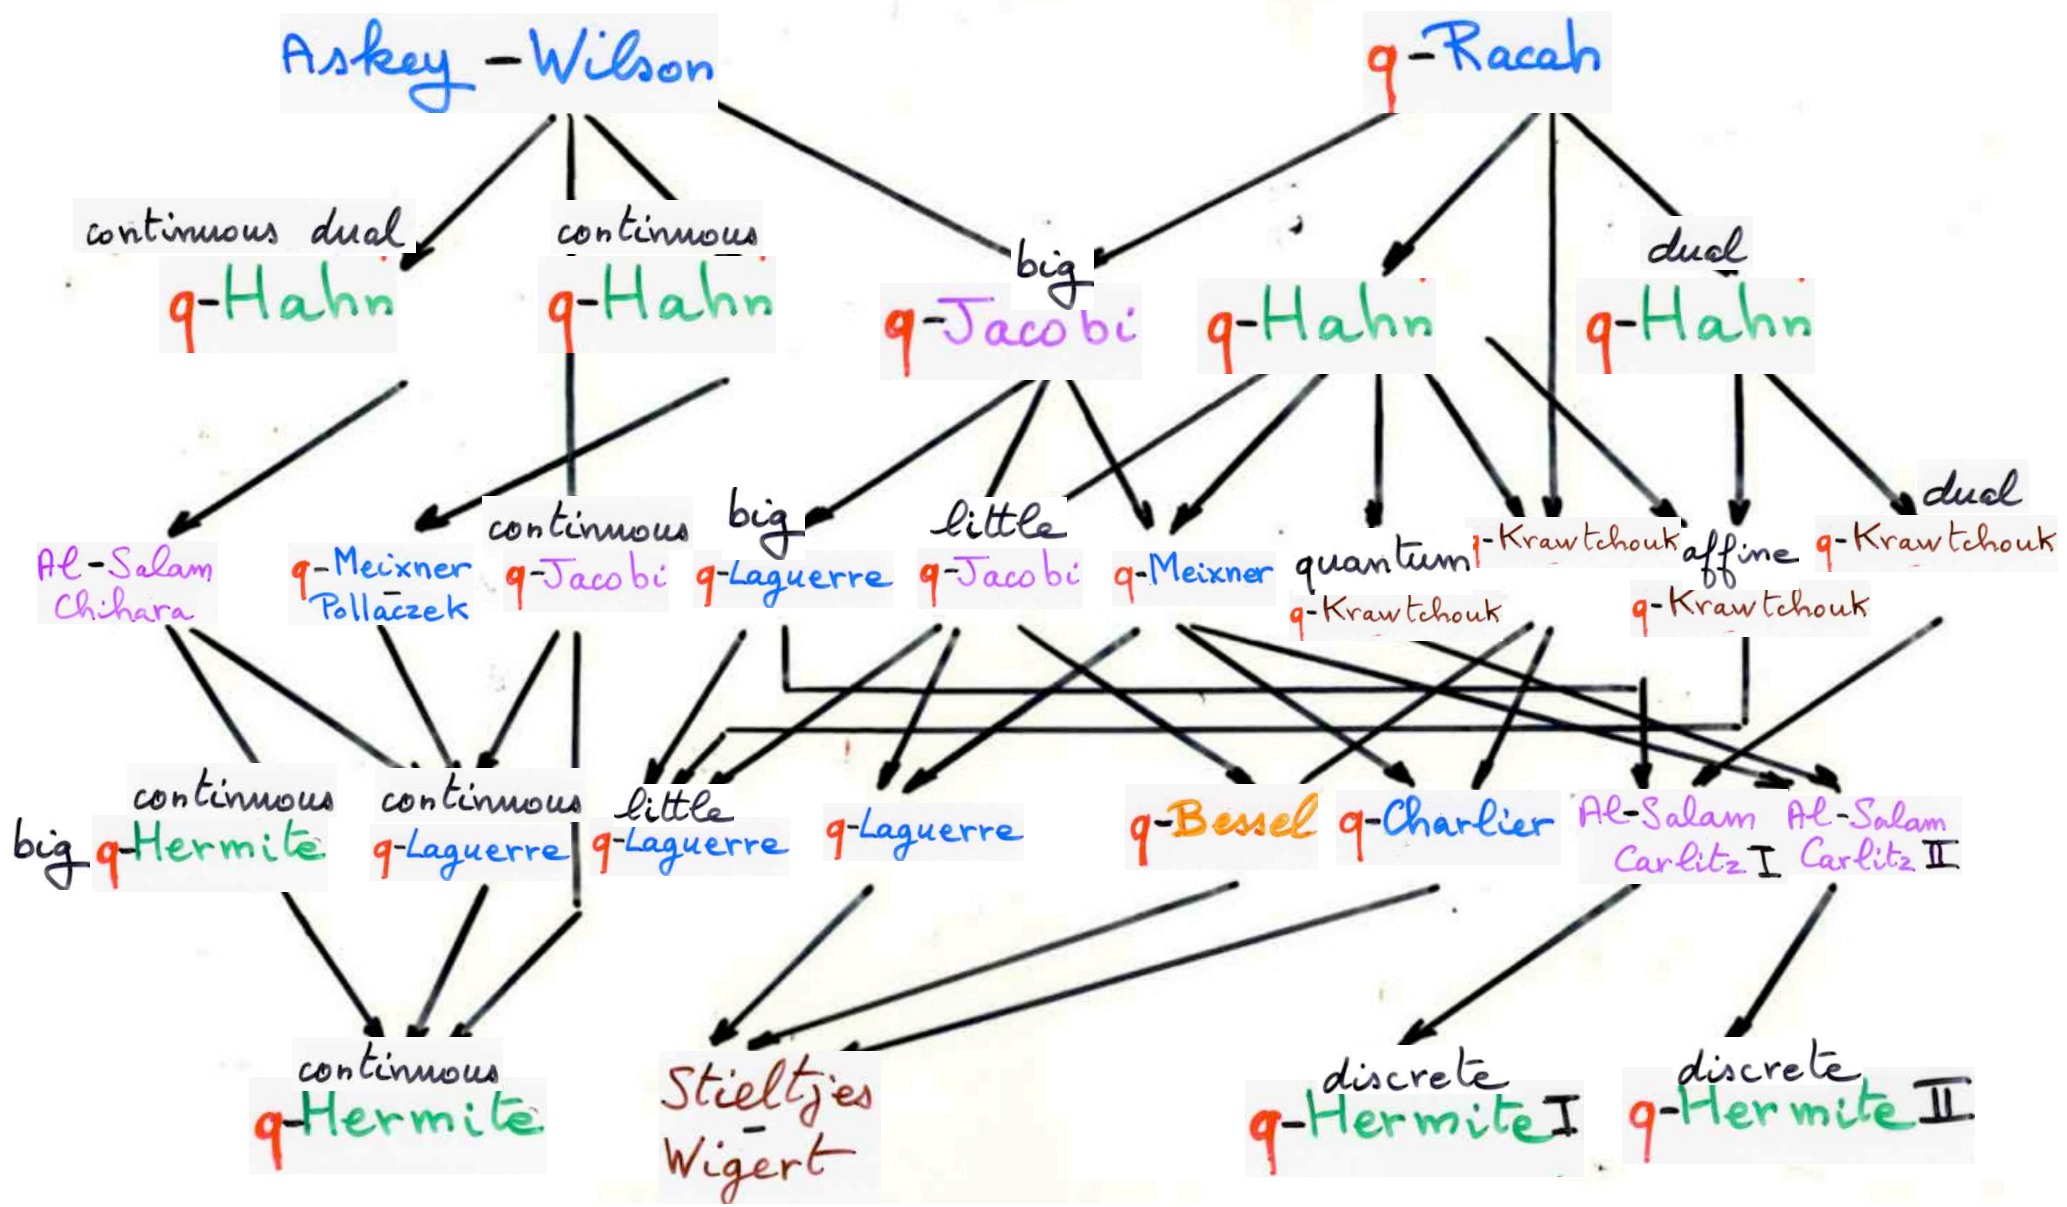 Askey - Wilson
q-Racah
continuous dual
q-Hahn
continuous
q-Hahn
big
q-Jacobi
q-Hahn
dual
q-Hahn
Al-Salam
Chihara
q-Meixner
-
Pollaczek
continuous
q-Jacobi
big
q-Laguerre
little
q-Jacobi
q-Meixner
quantum
q-Krawtchouk
q-Krawtchouk
affine
q-Krawtchouk
dual
q-Krawtchouk
continuous
big q-Hermite
continuous
q-Laguerre
little
q-Laguerre
q-Laguerre
q-Bessel
q-Charlier
Al-Salam
Carlitz I
Al-Salam
Carlitz II
continuous
q-Hermite
Stieltjes
-
Wigert
discrete
q-Hermite I
discrete
q-Hermite II